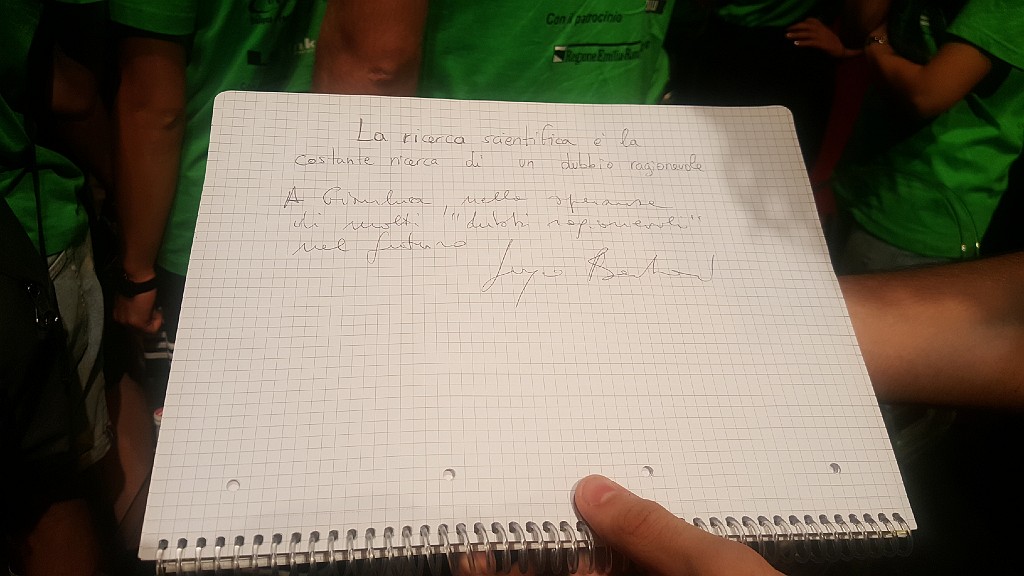 Con il patrocinio
Regione Emilia-Rom
La ricerca scientifica è la
costante ricerca di un dubbio ragionevole
A Gianluca nella speranza
di molti "dubbi ragionevoli"
nel futuro